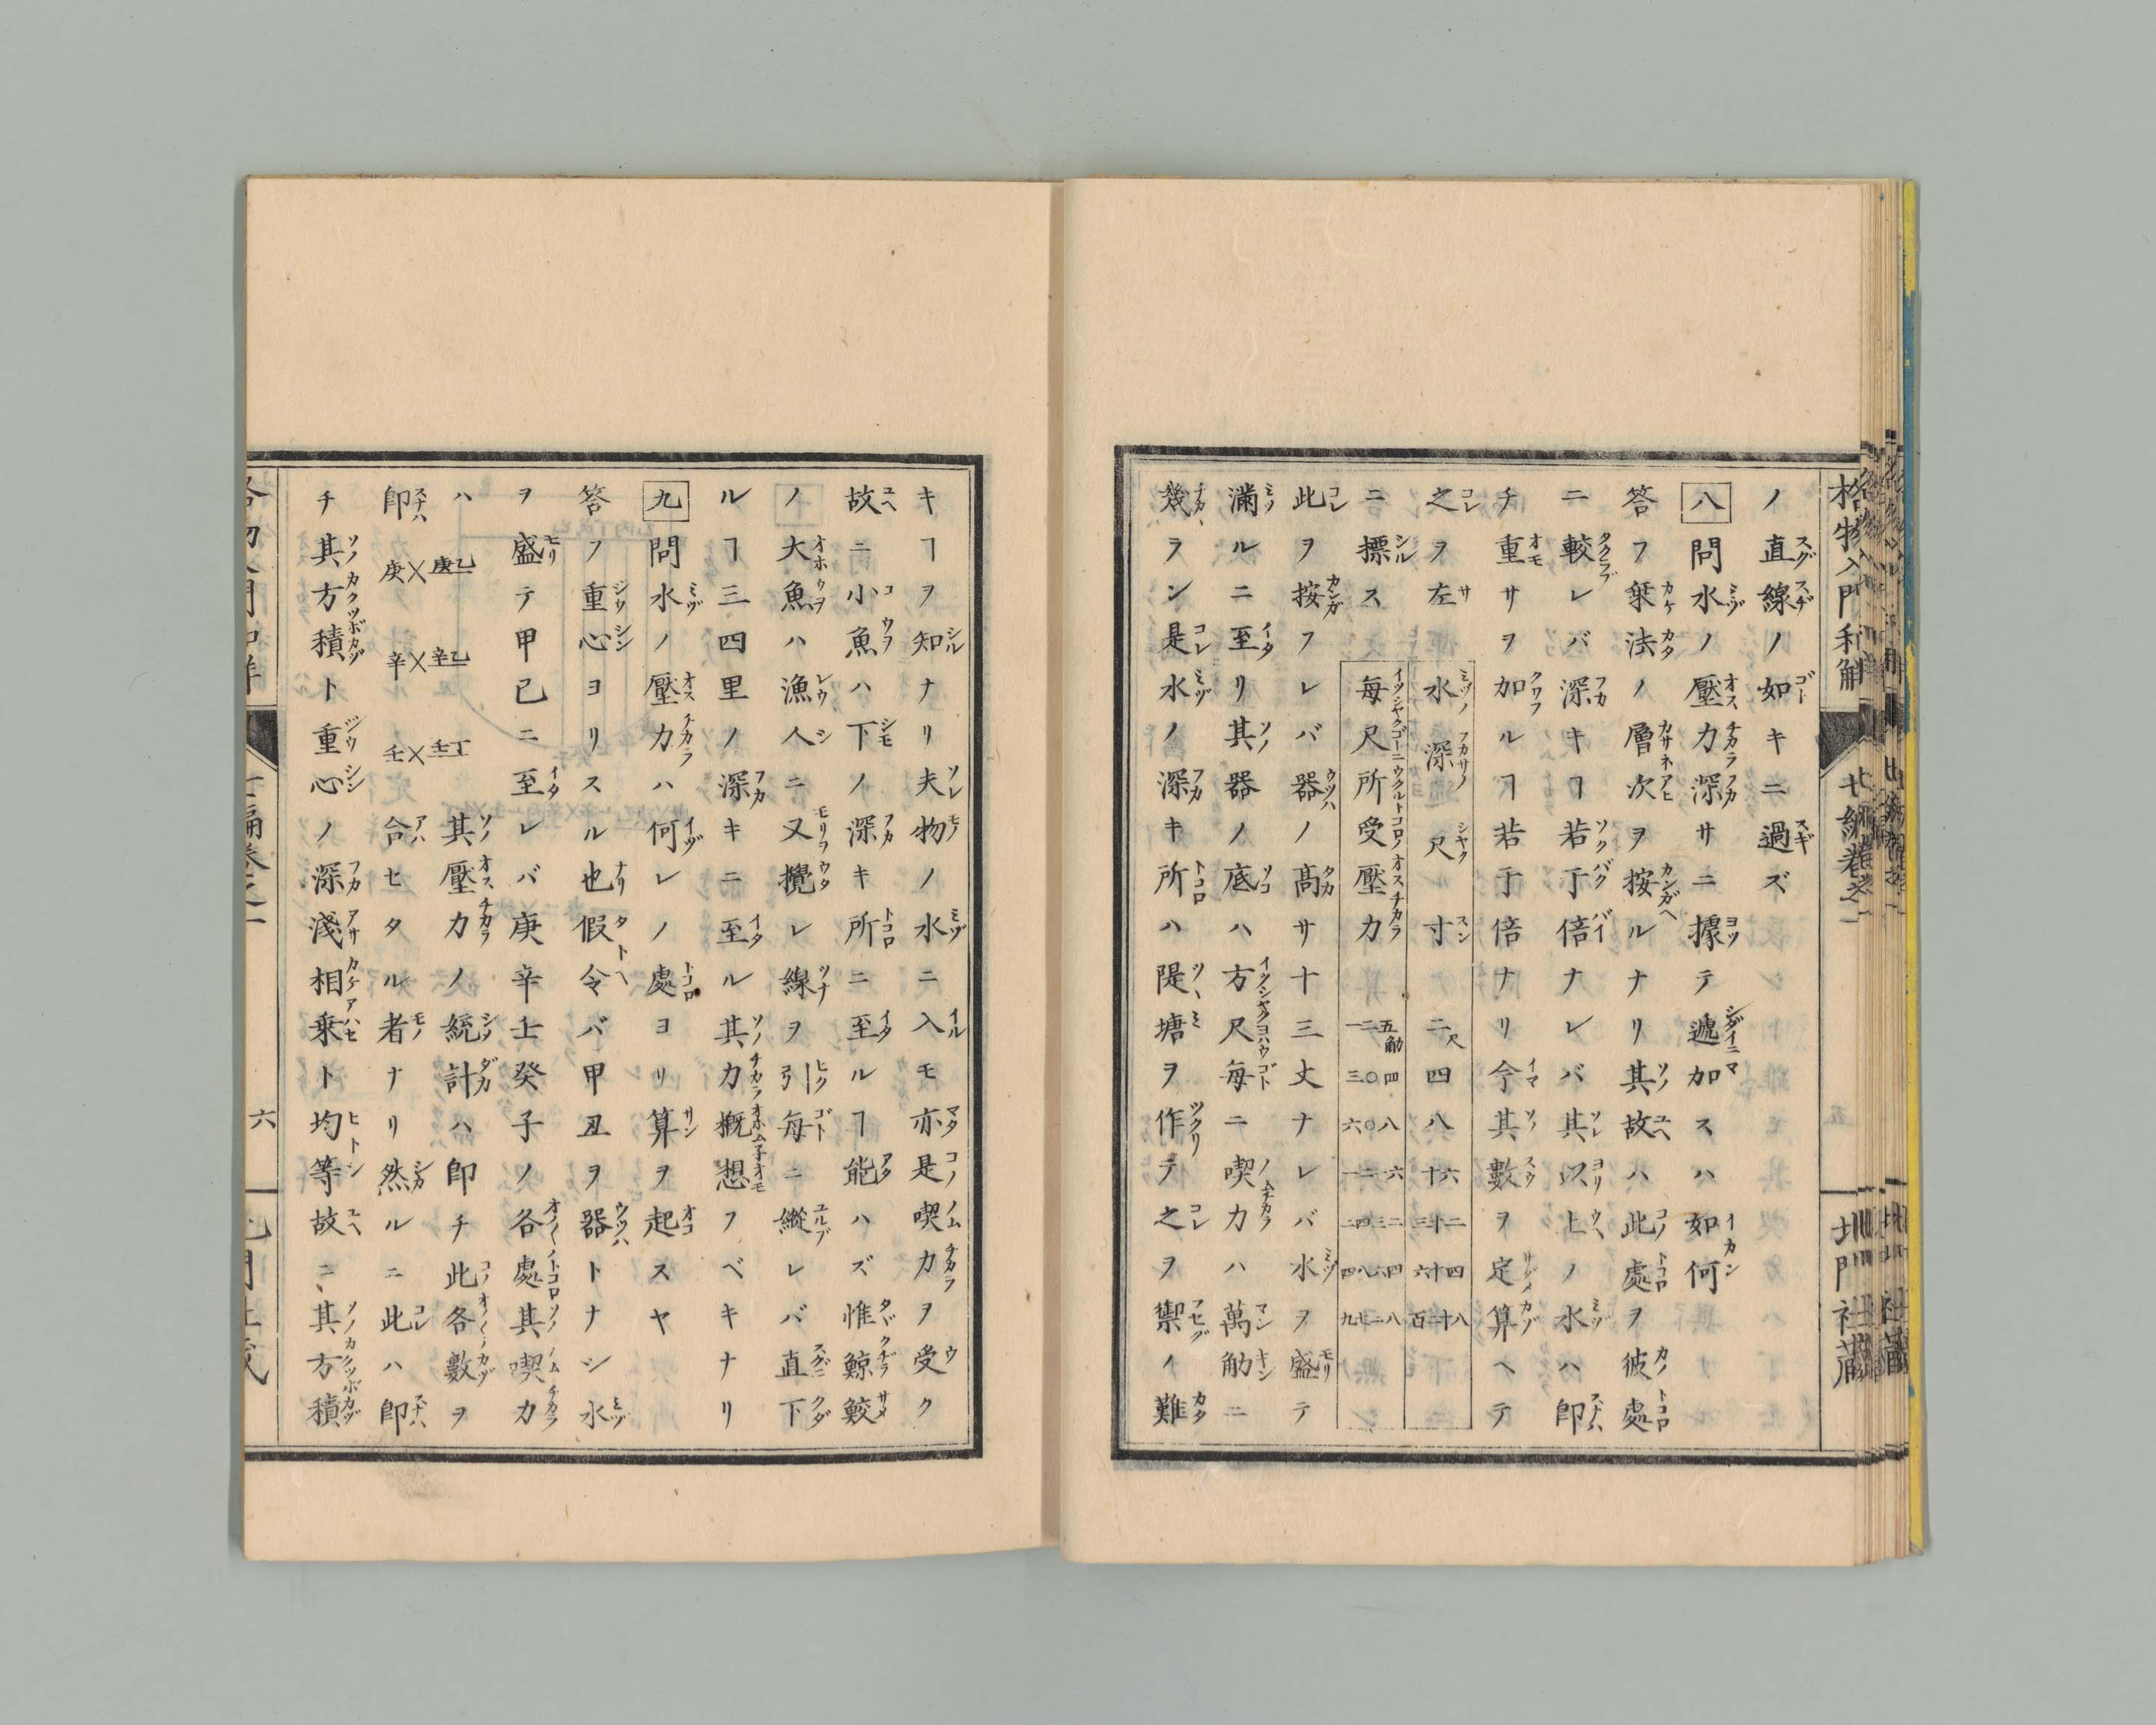 格物入門和解
七編巻之一
北門社蔵
ノ直線ノ如キニ過ズ
八 問水ノ壓力深サニ據テ遞加スハ如何
答フ乗法ノ層次ヲ按ルナリ其故ハ此處ヲ彼處
ニ較レバ深キヿ若干倍ナレバ其以上ノ水ハ即
チ重サヲ加ルヿ若干倍ナリ今其數ヲ定算ヘテ
之ヲ左
水深尺寸 二尺 四 八 十六 三十二 六十四 百二十八
ニ標ス
每尺所受壓力 一二五觔 三〇四 六〇八 一二一六 二四三二 四八六四 九七二八
此ヲ按フレバ器ノ髙サ十三丈ナレバ水ヲ盛テ
滿ルニ至リ其器ノ底ハ方尺每ニ喫力ハ萬觔ニ
幾ラン是水ノ深キ所ハ隄塘ヲ作テ之ヲ禦ノ難
キヿヲ知ナリ夫物ノ水ニ入モ亦是喫力ヲ受ク
故ニ小魚ハ下ノ深キ所ニ至ルヿ能ハズ惟鯨鮫
ノ大魚ハ漁人ニ又攪レ線ヲ引每ニ縱レバ直下
ルヿ三四里ノ深キニ至ル其力概想フベキナリ
九 問水ノ壓力ハ何レノ處ヨリ算ヲ起スヤ
答フ重心ヨリスル也假令バ甲丑ヲ器トナシ水
ヲ盛テ甲已ニ至レバ庚辛壬癸子ノ各處其喫力
ハ 庚乙 辛乙 壬丁 其壓力ノ統計ハ即チ此各數ヲ
即 庚╳ 辛╳ 壬╳ 合セタル者ナリ然ルニ此ハ即
チ其方積ト重心ノ深淺相乗ト均等故ニ其方積
六